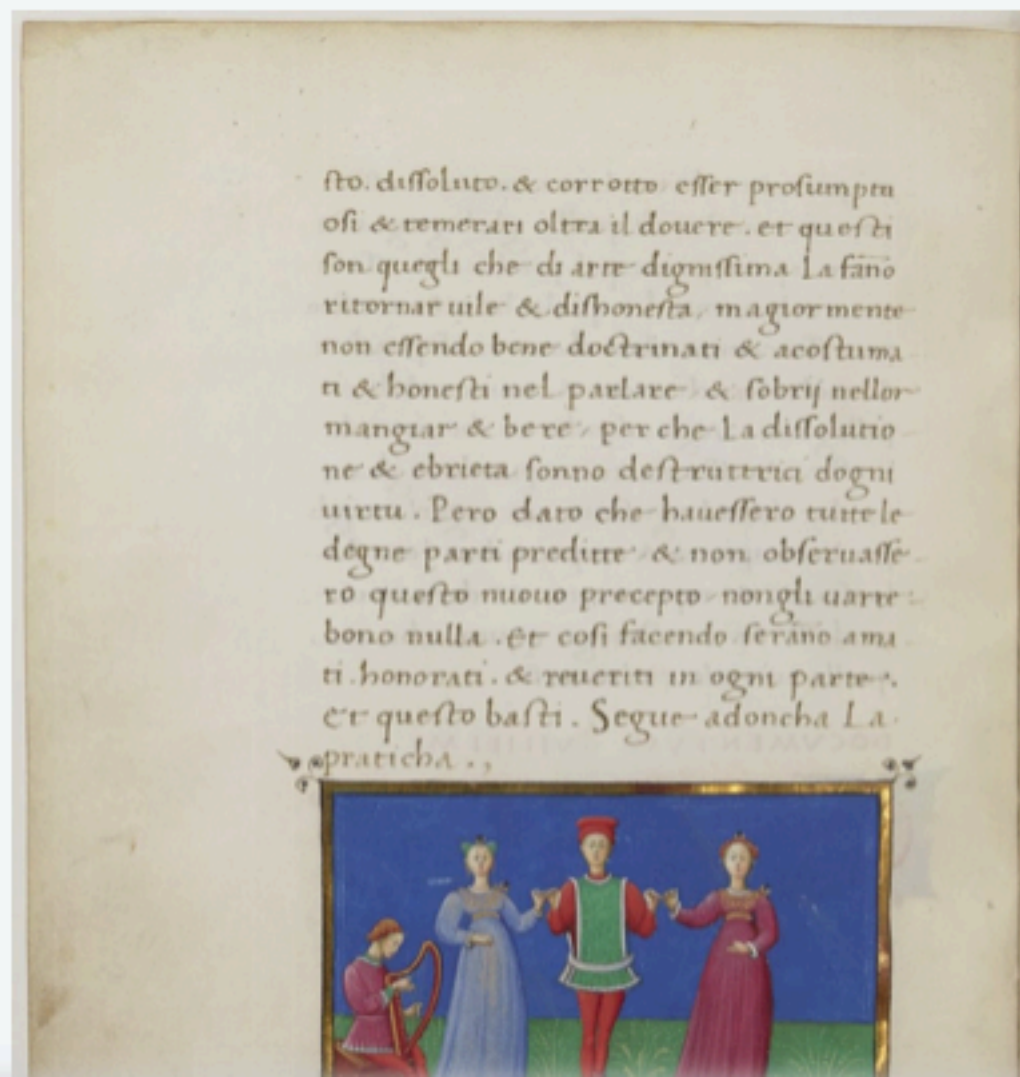 sto. dissoluto. & corrotto esser prosumptu
osi & temerari oltra il douere. et questi
son quegli che di arte dignissima La fāno
ritornar uile & dishonesta, magiormente
non essendo bene doctrinati & acostuma
ti & honesti nel parlare & sobrij nellor
mangiar & bere, per che La dissolutio
ne & ebrieta sonno destruttrici dogni
uirtu. Pero dato che hauessero tutte le
degne parti preditte & non obseruasse
ro questo nuouo precepto nongli uarre
bono nulla. Et cosi facendo serāno ama
ti. honorati. & reueriti in ogni parte.
Et questo basti. Segue adoncha La
praticha.,